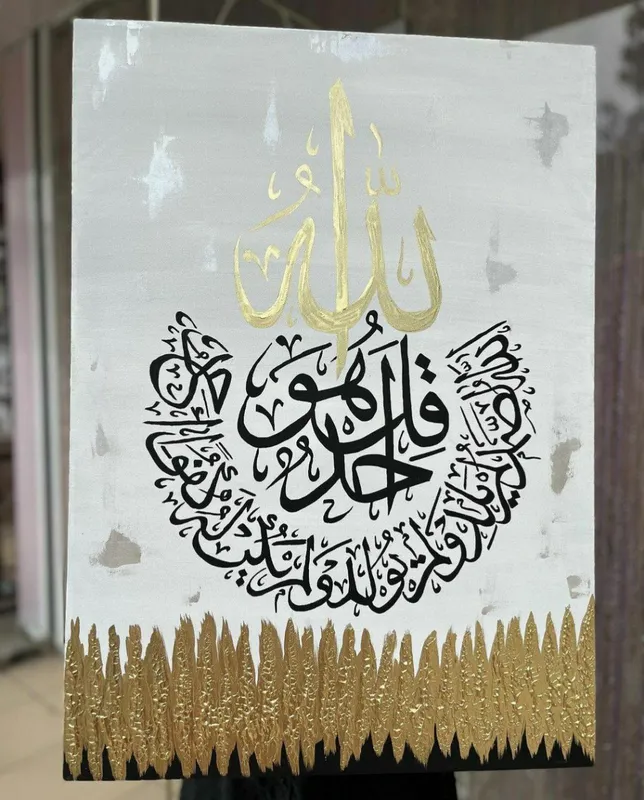 الله
قل هو
أحد
الله الصمد لم يلد ولم يولد ولم يكن له كفوا أحد